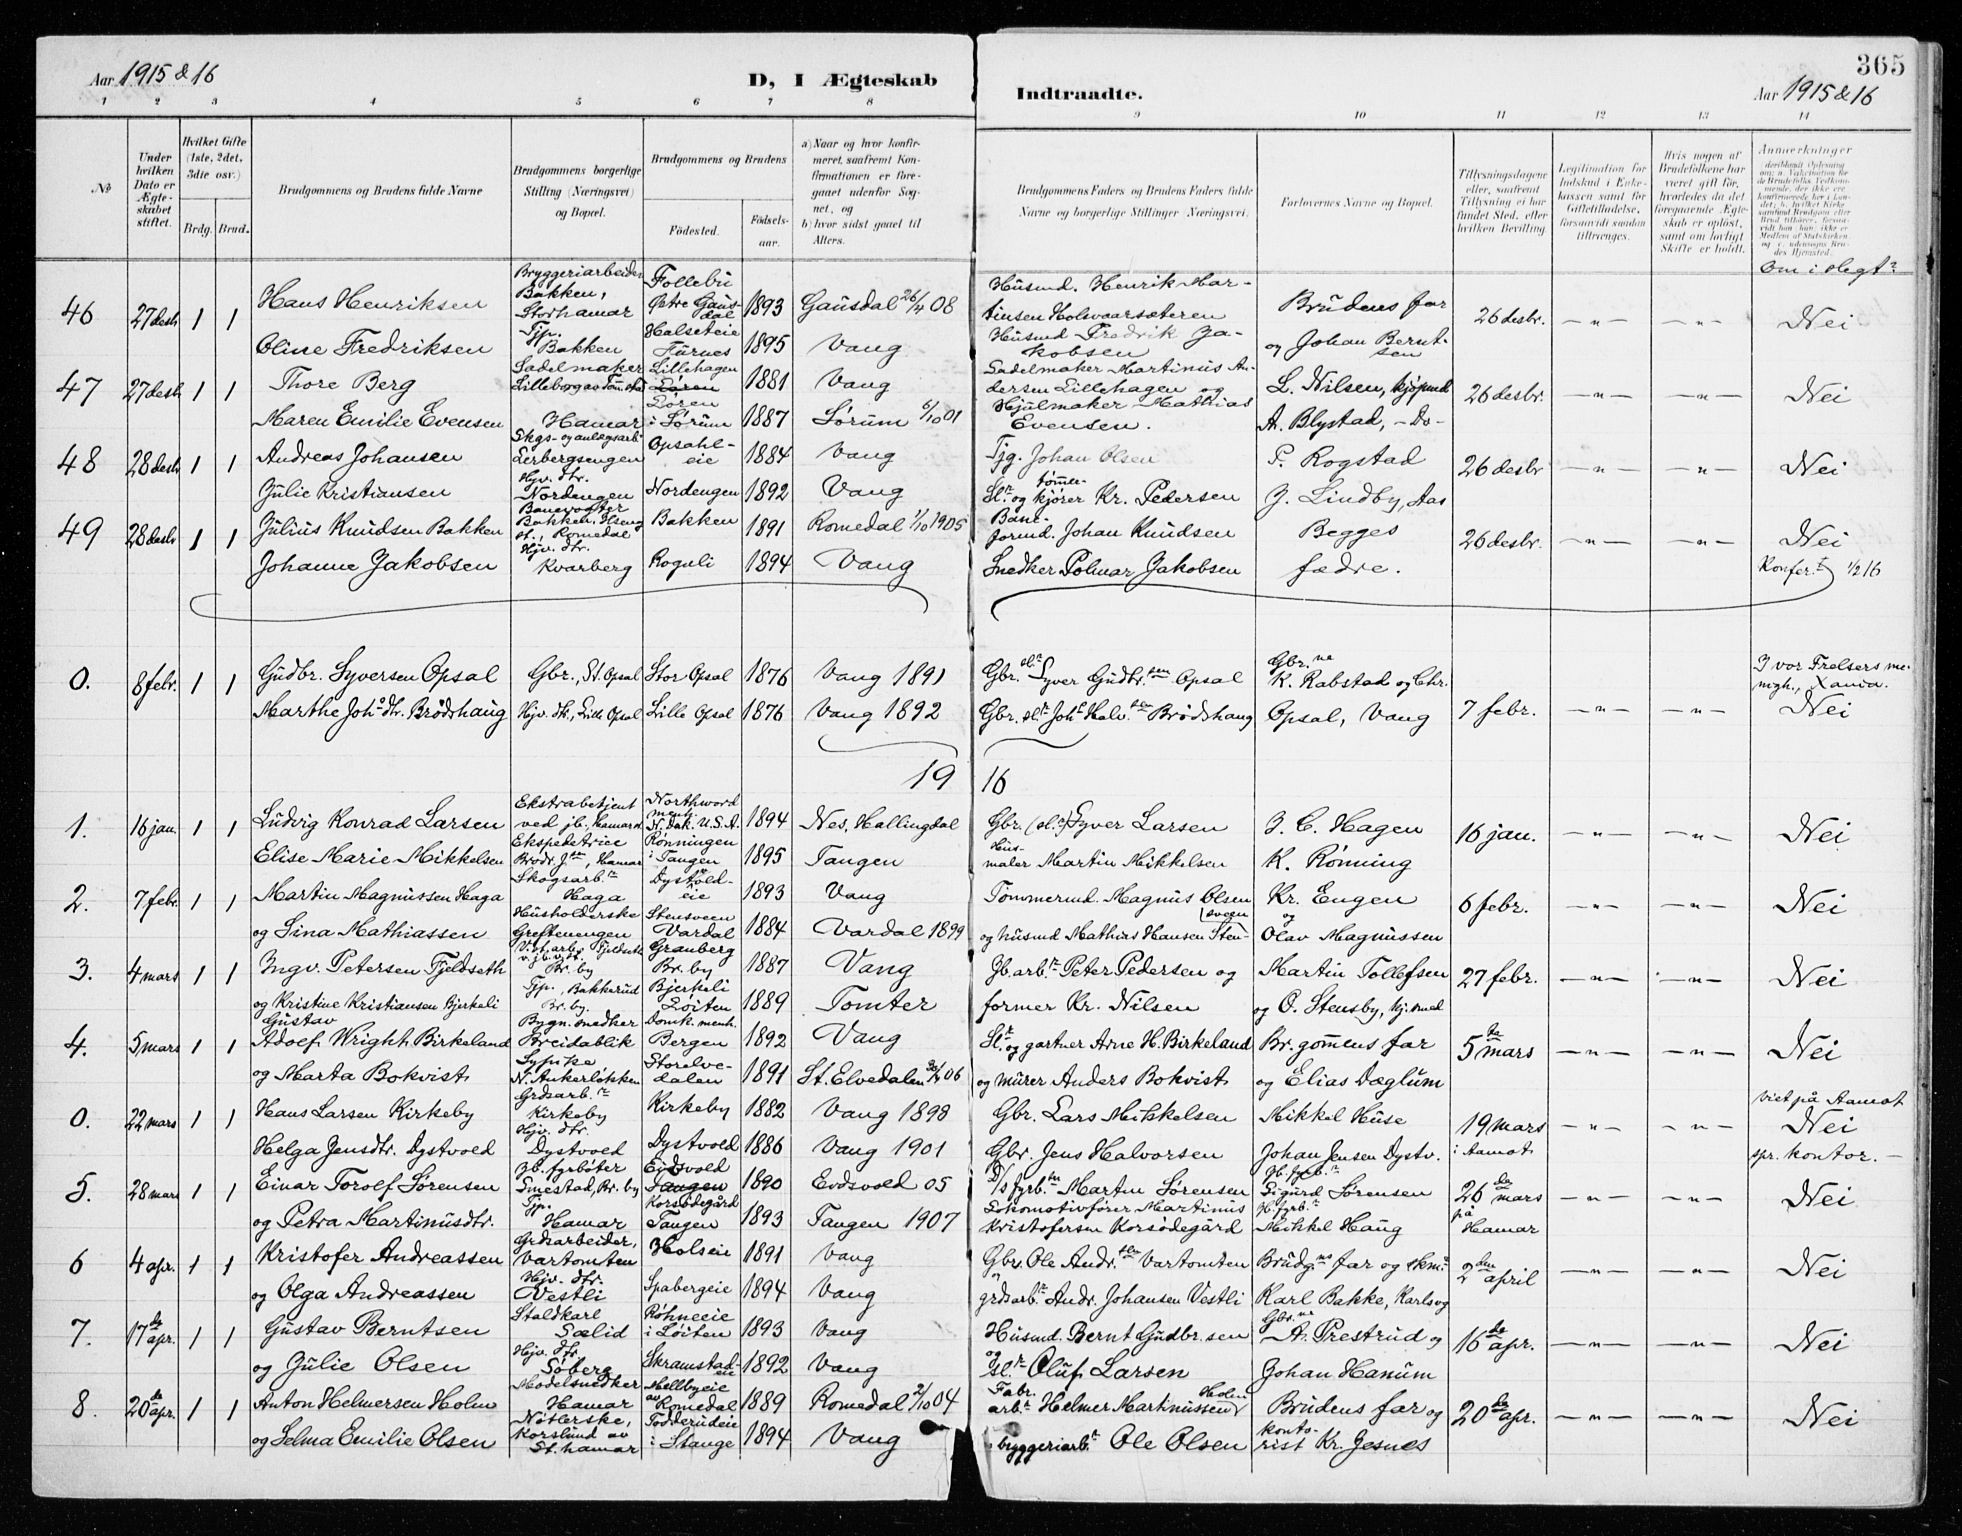 365
Aar 1915 & 16
D, I Ægteskab
Indtraadte.
Aar 1915 & 16
1 2 3 4 5 6 7 8 9 10 11 12 13 14
No
Under hvilken Dato er Ægteskabet stiftet.
Hvilket Gifte (1ste, 2det, 3die osv.)
Brdg. Brud.
Brudgommens og Brudens fulde Navne
Brudgommens borgerlige Stilling (Næringsvei) og Bopæl.
Brudgommens og Brudens
Fødested.
Fødsels-aar.
a) Naar og hvor konfirmeret, saafremt Konfirmationen er foregaaet udenfor Sognet, og
b) hvor sidst gaaet til Alters.
Brudgommens Faders og Brudens Faders fulde Navne og borgerlige Stillinger Næringsvei.
Forlovernes Navne og Bopæl.
Tillysningsdagene eller, saafremt Tillysning ei har fundet Sted, efter hvilken Bevilling.
Legitimation for Indskud i Enkekassen samt for Giftetilladelse, forsaavidt saadan tiltrænges.
Hvis nogen af Brudefolkene har været gift før, hvorledes da det foregaaende Ægteskab er opløst, samt om lovligt Skifte er holdt.
Anmerkninger
Om i slegt?
46 27 desb 1 1 Hans Henriksen Bryggeriarbeider Bakken, Storhamar Follebu Østre Gausdal 1893 Gausdal 26/4 08 Husmd. Henrik Martinsen Holvaarsæteren Brudens far 26 desbr. — " — — " — Nei
Oline Fredriksen Tjp. Bakken Halseteie Furnes 1895 Vang Husmd Fredrik Jakobsen og Johan Berntsen
47 27 desb 1 1 Thore Berg Sadelmaker Lilleborg Lillehagen 1881 Vang Sadelmaker Martinus Andersen Lillehagen og L. Nilsen, kjøpmd 26 desbr. — " — — " — Nei
Maren Emilie Evensen Hamar Løren i Sørum 1887 Sørum 6/10 01 Hjulmaker Mathias Evensen. A. Blystad, — Do —
48 28 desb 1 1 Andreas Johansen Skgs- og anlægsarb. Lerbergsengen Opsahl-eie 1884 Vang Tjg. Johan Olsen P. Rogstad 26 desbr — " — — " — Nei
Julie Kristiansen Hjv. dtr. Nordengen Nordengen 1892 Vang Sl. og tømmerkjører Kr. Pedersen J. Lindby, Aas
49 28 desb 1 1 Julius Knudsen Bakken Banevogter Bakken, Ilseng st., Romedal Bakken 1891 Romedal 1/10 1905 Baneformd. Johan Knudsen Begges 26 desbr. — " — — " — Nei
Johanne Jakobsen Hjv. dtr. Kvarberg Roguli 1894 Vang Snedker Polmar Jakobsen fædre. Konfer. 1/2 16
0. 8 febr. 1 1 Gudbr. Syversen Opsal Gbr., St. Opsal Stor Opsal 1876 Vang 1891 Gbr. Syver Gudbr.sen Opsal Gbr.ne K. Rabstad og Chr. I vor Frelsers menigh., Xania.
Marthe Joh.dtr. Brødshaug Hjv. dtr., Lille Opsal Lille Opsal 1876 Vang 1892 Gbr. Joh. Halv.sen Brødshaug Opsal, Vang 7 febr. — " — — " — Nei
19 16
1. 16 jan. 1 1 Ludvig Konrad Larsen Ekstrabetjent ved jb., Hamar Northwood menh. N. Dak. U.S.A. 1894 Nes, Hallingdal Gbr. Syver Larsen J. C. Hagen 16 jan. — " — — " — Nei
Elise Marie Mikkelsen Ekspeditrice Hamar Rønningen i Tangen 1895 Tangen maler Martin Mikkelsen K. Rønning
2. 7 febr. 1 1 Martin Magnussen Haga Skogsarb. Haga Dystvold-eie 1893 Vang Tømmermd. Magnus Olsen Kr. Engen 6 febr. — " — — " — Nei
og Lina Mathiassen Husholderske Grefteengen Stensveen Vardal 1884 Vardal 1899 og husmd Mathias Hansen Stensveen og Olav Magnussen
3. 4 mars 1 1 Ingv. Petersen Fjeldseth Br. by Granberg Br. by 1887 Vang Jb. arb. Peter Pedersen og Martin Tollefsen 27 febr. — " — — " — Nei
og Kristine Kristiansen Bjerkeli Tjp., Bakkerud Br. by. Bjerkeli Løiten 1889 Tomter former Kr. Nilsen og O. Stensby, kj. smed
4. 5 mars 1 1 Gustav Adolf Wright Birkeland Bygn. snedker Breidablik Domk. menh. Bergen 1892 Vang Sl. og gartner Arne H. Birkeland Br. gommens far 5 mars — " — — " — Nei
og Marta Bokvist Sypike N. Ankerløkken Storelvedalen 1891 St. Elvedalen 06 og murer Anders Bokvist og Elias Dæglum
0. 22 mars 1 1 Hans Larsen Kirkeby Grdsarb. Kirkeby Kirkeby 1882 Vang 1898 Gbr. Lars Mikkelsen Mikkel Huse 19 mars — " — — " — Viet på Aamot Nei
Helga Jensdtr. Dystvold Hjv. dtr. Dystvold Dystvold 1886 Vang 1901 Gbr. Jens Halvorsen Johan Jensen Dystv. i Aamot spr. kontor. —
5. 28 mars 1 1 Einar Torolf Sørensen Jb. fyrbøter Smestad, Br. by Eidsvold Tangen 1890 Eidsvold 05 D/s fyrb. Martin Sørensen Sigurd Sørensen 26 mars — " — — " — Nei
og Petra Martinusdtr. Tjp. Hamar Korsødegård Tangen 1893 Tangen 1907 Lokomotivfører Martinus Kristofersen Korsødegård Mikkel Haug på Hamar
6 4 apr. 1 1 Kristofer Andreassen Grdsarbeider, Vartomten Holseie 1891 Vang Gbr. Ole Andr.sen Vartomten Brudg.ns far og skm. 2den april — " — — " — Nei
og Olga Andreassen Hjv. dtr. Vestli Spabergeie 1894 Vang og grdsarb. Andr. Johansen Vestli Karl Bakke, Karls og
7. 17de apr. 1 1 Gustav Berntsen Staldkarl Sælid Røhneeie i Løiten 1893 Vang Husmd. Bernt Gudbr.sen Gbr.ne A. Prestrud og 16de apr. — " — — " — Nei
og Julie Olsen Hjv. dtr. Søberg Skramstad-eie 1892 Vang og Sl. Oluf Larsen Johan Hanum
8. 20de apr. 1 1 Anton Helmersen Holm Modelsnedker Hamar Mellbyeie av Romedal 1889 Romedal 2/10 04 Fabr. arb. Helmer Martinussen Holm Brudens far og 20de apr. — " — — " — Nei
og Selma Emilie Olsen Korslund av St. hamar Todderudeie i Stange 1894 Vang bryggeriarb. Ole Olsen kontorist Kr. Jesnes